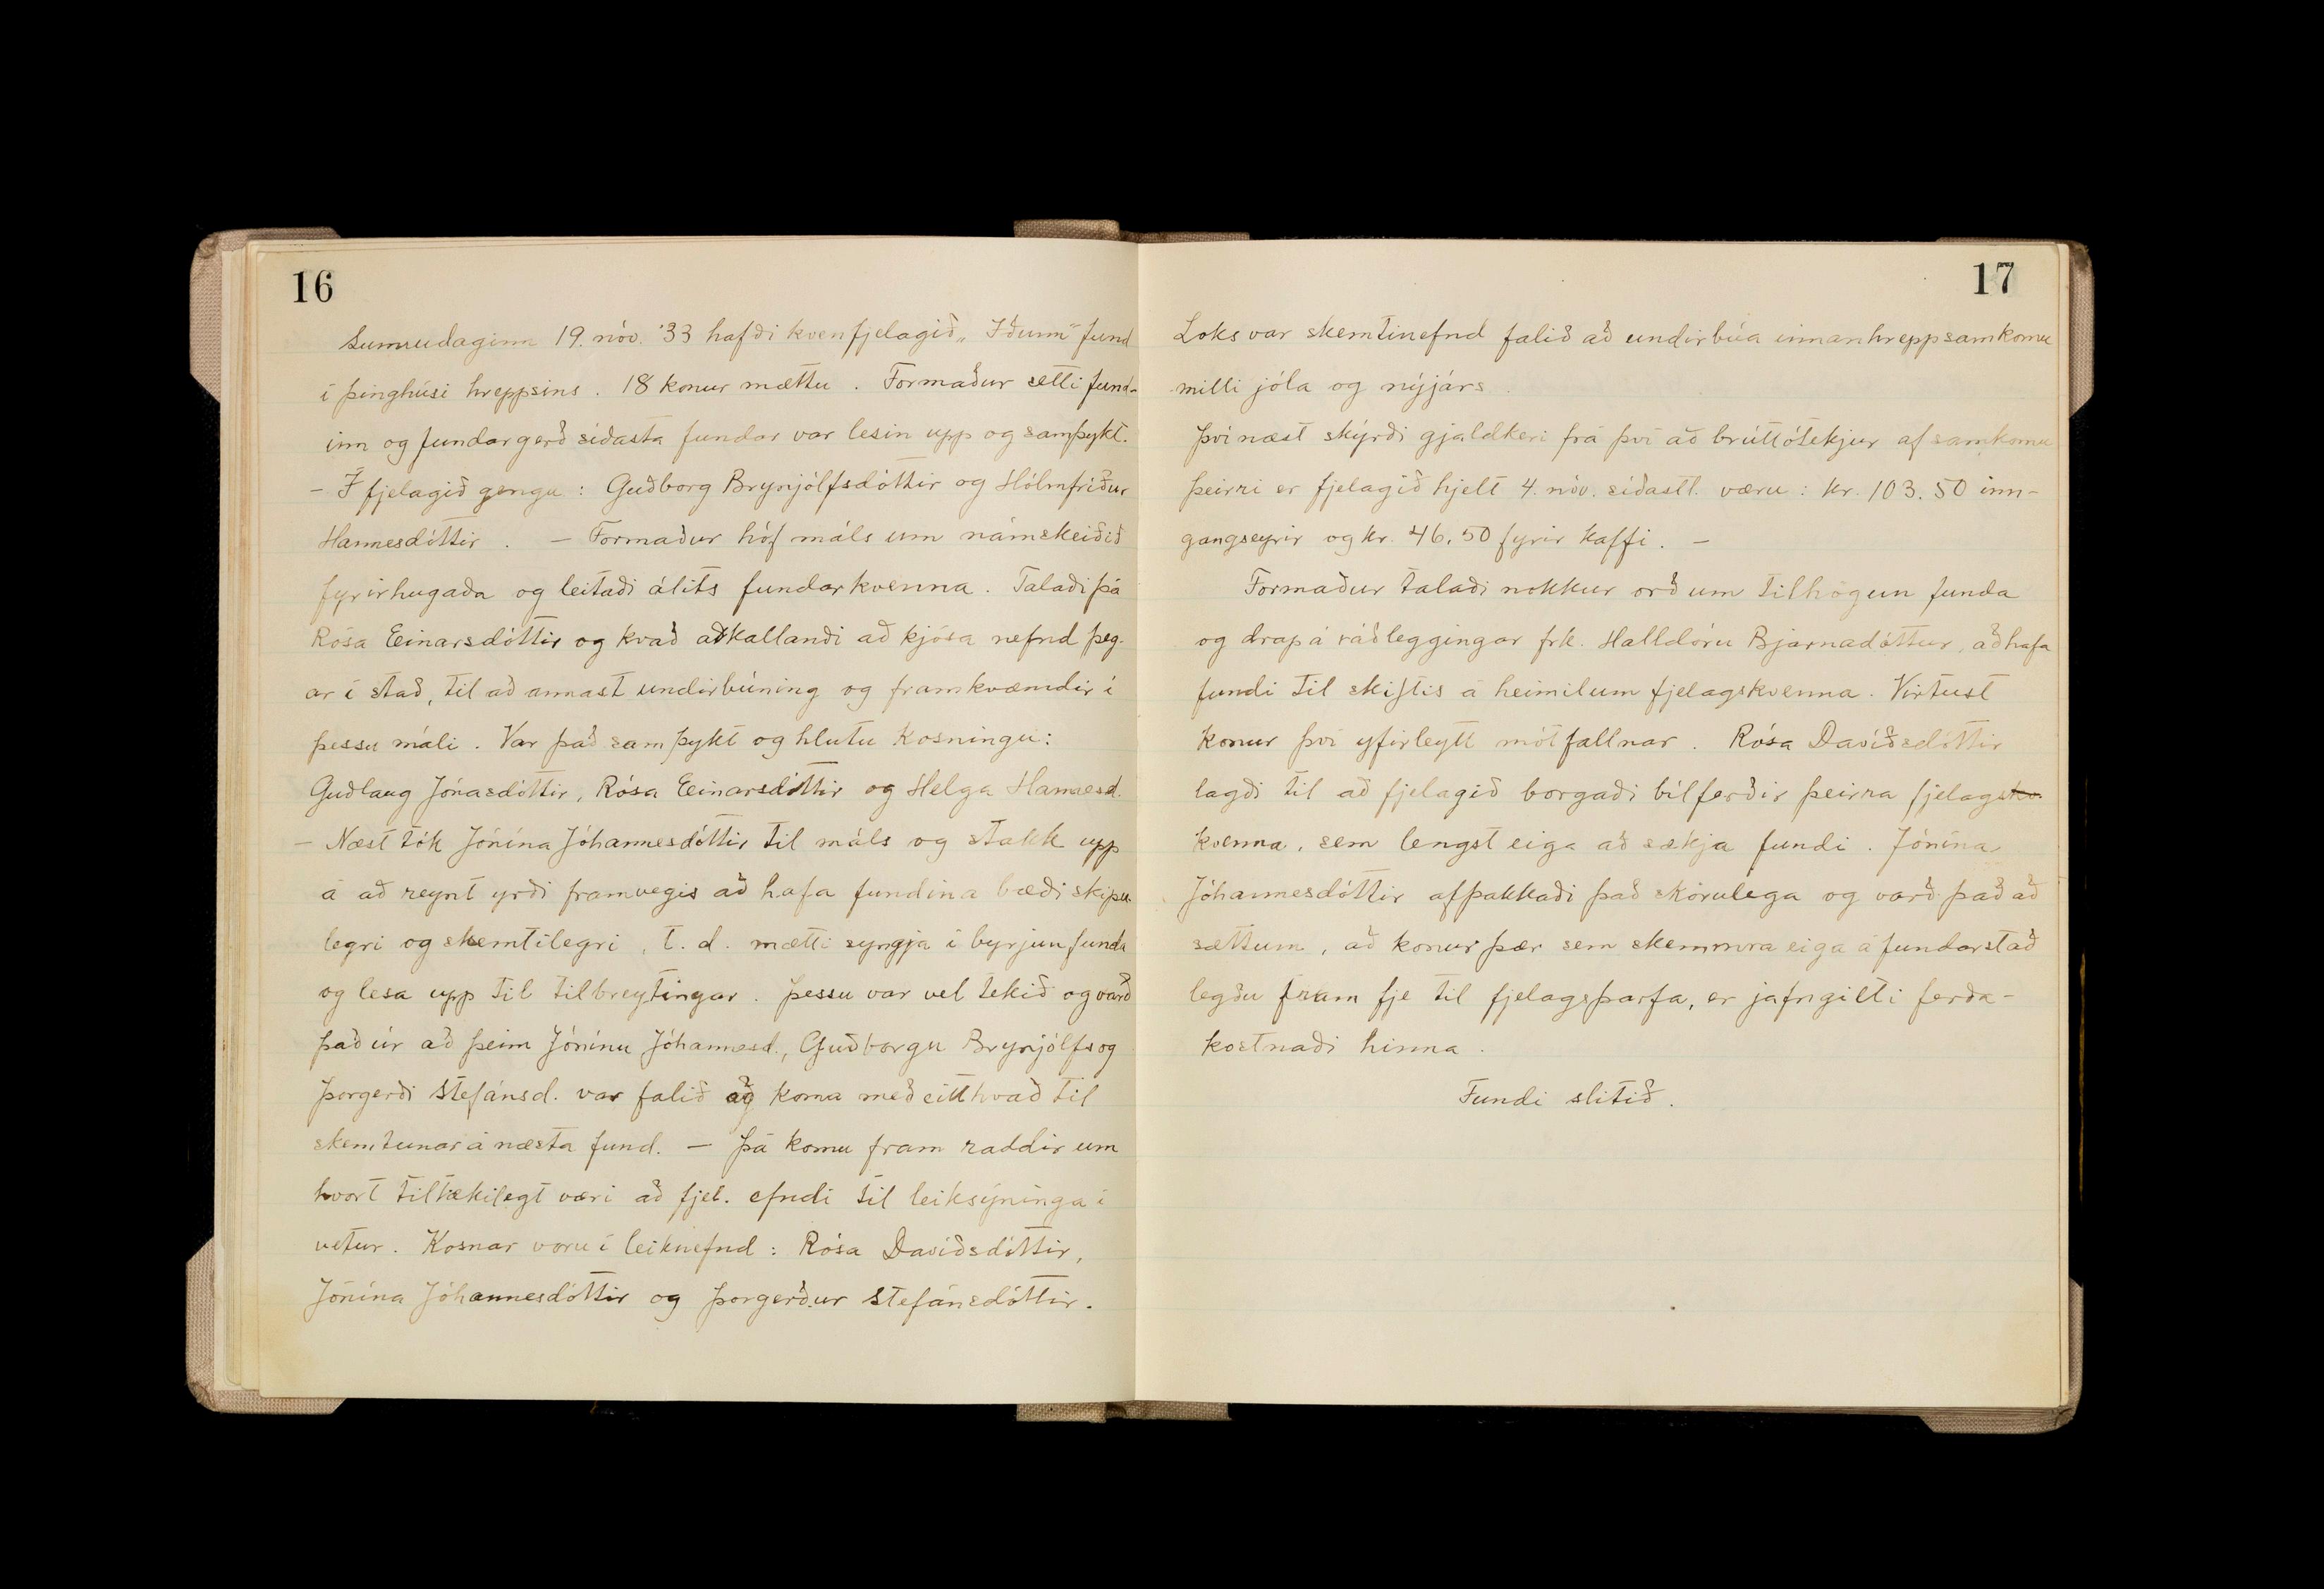 16
Sunnudaginn 19. nóv. '33 hafði kvenfjelagið „Iðunn" fund
í þinghúsi hreppsins. 18 konur mættu. Formaður setti fund-
inn og fundargerð síðasta fundar var lesin upp og samþykt.
- Í fjelagið gengu: Guðborg Brynjólfsdóttir og Hólmfríður
Hannesdóttir. - Formaður hóf máls um námskeiðið
fyrirhugaða og leitaði álits fundarkvenna. Talaði þá
Rósa Einarsdóttir og kvað aðkallandi að kjósa nefnd þeg-
ar í stað, til að annast undirbúning og framkvæmdir í
þessu máli. Var það samþykt og hlutu kosningu:
Guðlaug Jónasdóttir, Rósa Einarsdóttir og Helga Hannesd.
- Næst tók Jónína Jóhannesdóttir til máls og stakk upp
á að reynt yrði framvegis að hafa fundina bæði skipu-
legri og skemtilegri, t.d. mætti syngja í byrjun funda
og lesa upp til tilbreytingar. Þessu var vel tekið og varð
það úr að þeim Jónínu Jóhannesd., Guðborgu Brynjólfs og
Þorgerði Stefánsd. var falið að koma með eitthvað til
skemtunar á næsta fund. - Þá komu fram raddir um
hvort tiltækilegt væri að fjel. efndi til leiksýninga í
vetur. Kosnar voru í leiknefnd: Rósa Davíðsdóttir,
Jónína Jóhannesdóttir og Þorgerður Stefánsdóttir.
17
Loks var skemtinefnd falið að undirbúa innanhreppsamkomu
milli jóla og nýjárs.
Því næst skýrði gjaldkeri frá því að brúttótekjur af samkomu
þeirri er fjelagið hjelt 4. nóv. síðastl. væru: kr. 103.50 inn-
gangseyrir og kr. 46.50 fyrir kaffi. -
Formaður talaði nokkur orð um tilhögun funda
og drap á ráðleggingar frk. Halldóru Bjarnadóttur, að hafa
fundi til skiftis á heimilum fjelagskvenna. Virtust
konur því yfirleytt mótfallnar. Rósa Davíðsdóttir
lagði til að fjelagið borgaði bílferðir þeirra fjelagskv.
kvenna, sem lengst eiga að sækja fundi. Jónína
Jóhannesdóttir afþakkaði það skörulega og varð það að
sættum, að konur þær sem skemmra eiga á fundarstað
legðu fram fje til fjelagsþarfa, er jafngilti ferða-
kostnaði hinna.
Fundi slitið.